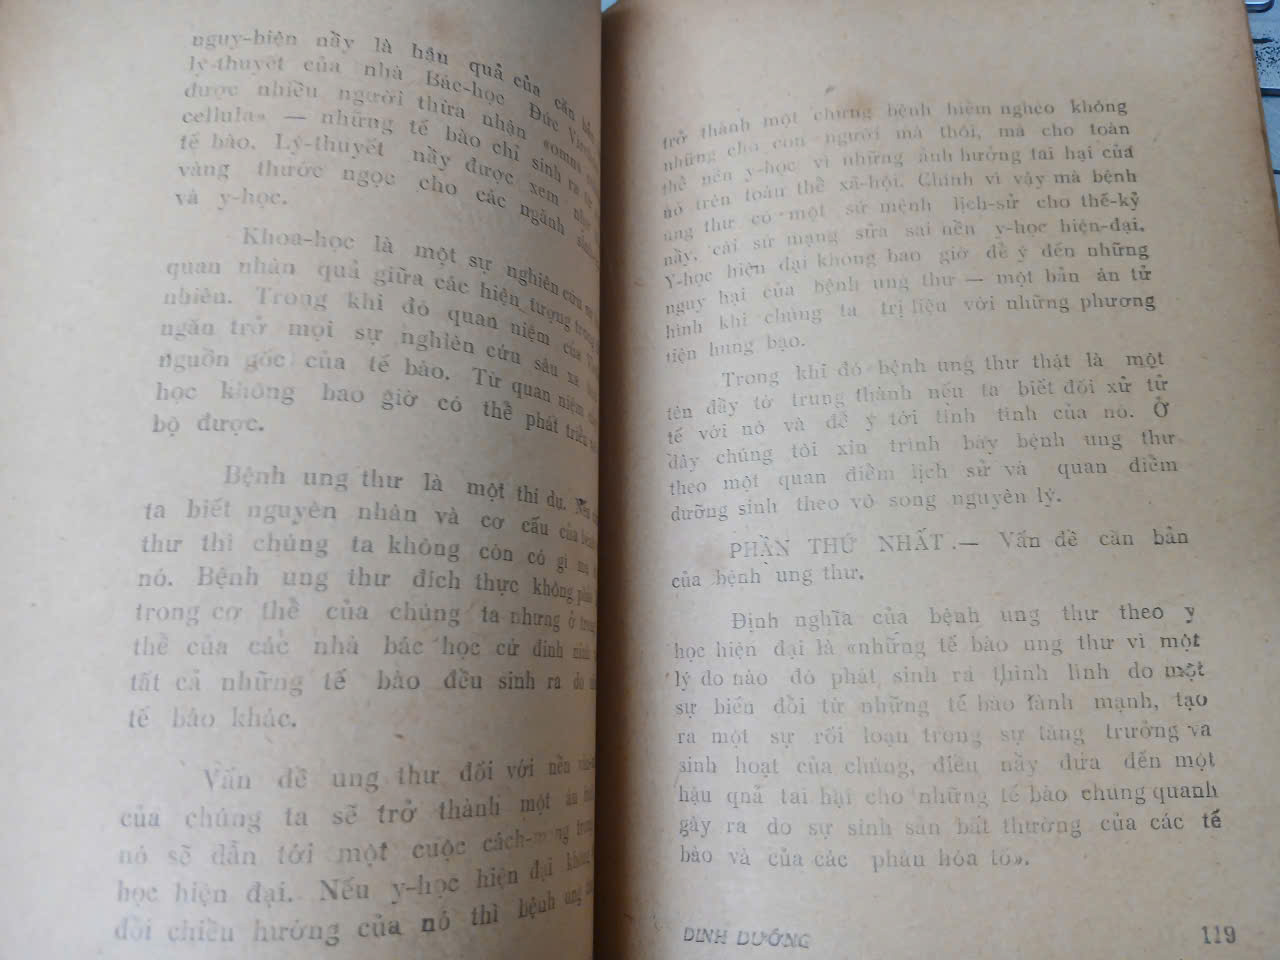 nguy-biện nầy là hậu quả của căn
lý-thuyết của nhà Bác-học Đức
được nhiều người thừa nhận «omns
cellula» — những tế bào chỉ sinh ra từ
tế bào. Lý-thuyết nầy được xem như
vàng thước ngọc cho các ngành sinh
và y-học.
Khoa-học là một sự nghiên cứu
quan nhân quả giữa các hiện tượng trong
nhiên. Trong khi đó quan niệm của
ngăn trở mọi sự nghiên cứu sâu xa
nguồn gốc của tế bào. Từ quan niệm
học không bao giờ có thể phát triển
bộ được.
Bệnh ung thư là một thí dụ. Nếu
ta biết nguyên nhân và cơ cấu của
thư thì chúng ta không còn có gì
nó. Bệnh ung thư đích thực không phải
trong cơ thể của chúng ta nhưng ở
thể của các nhà bác học cứ đinh ninh
tất cả những tế bào đều sinh ra do
tế bào khác.
Vấn đề ung thư đối với nền
của chúng ta sẽ trở thành một án
nó sẽ dẫn tới một cuộc cách-mạng trong
học hiện đại. Nếu y-học hiện đại không
đổi chiều hướng của nó thì bệnh ung
trở thành một chứng bệnh hiểm nghèo không
những cho con người mà thôi, mà cho toàn
thể nền y-học vì những ảnh hưởng tai hại của
nó trên toàn thể xã-hội. Chính vì vậy mà bệnh
ung thư có một sứ mệnh lịch-sử cho thế-kỷ
nầy, cái sứ mạng sửa sai nền y-học hiện-đại.
Y-học hiện đại không bao giờ để ý đến những
nguy hại của bệnh ung thư — một bản án tử
hình khi chúng ta trị liệu với những phương
tiện hung bạo.
Trong khi đó bệnh ung thư thật là một
tên đầy tớ trung thành nếu ta biết đối xử tử
tế với nó và để ý tới tính tình của nó. Ở
đây chúng tôi xin trình bày bệnh ung thư
theo một quan điểm lịch sử và quan điểm
dưỡng sinh theo vô song nguyên lý.
PHẦN THỨ NHẤT.— Vấn đề căn bản
của bệnh ung thư.
Định nghĩa của bệnh ung thư theo y
học hiện đại là «những tế bào ung thư vì một
lý do nào đó phát sinh ra thình lình do một
sự biến đổi từ những tế bào lành mạnh, tạo
ra một sự rối loạn trong sự tăng trưởng và
sinh hoạt của chúng, điều nầy đưa đến một
hậu quả tai hại cho những tế bào chung quanh
gây ra do sự sinh sản bất thường của các tế
bào và của các phân hóa tố».
DINH DƯỠNG 119